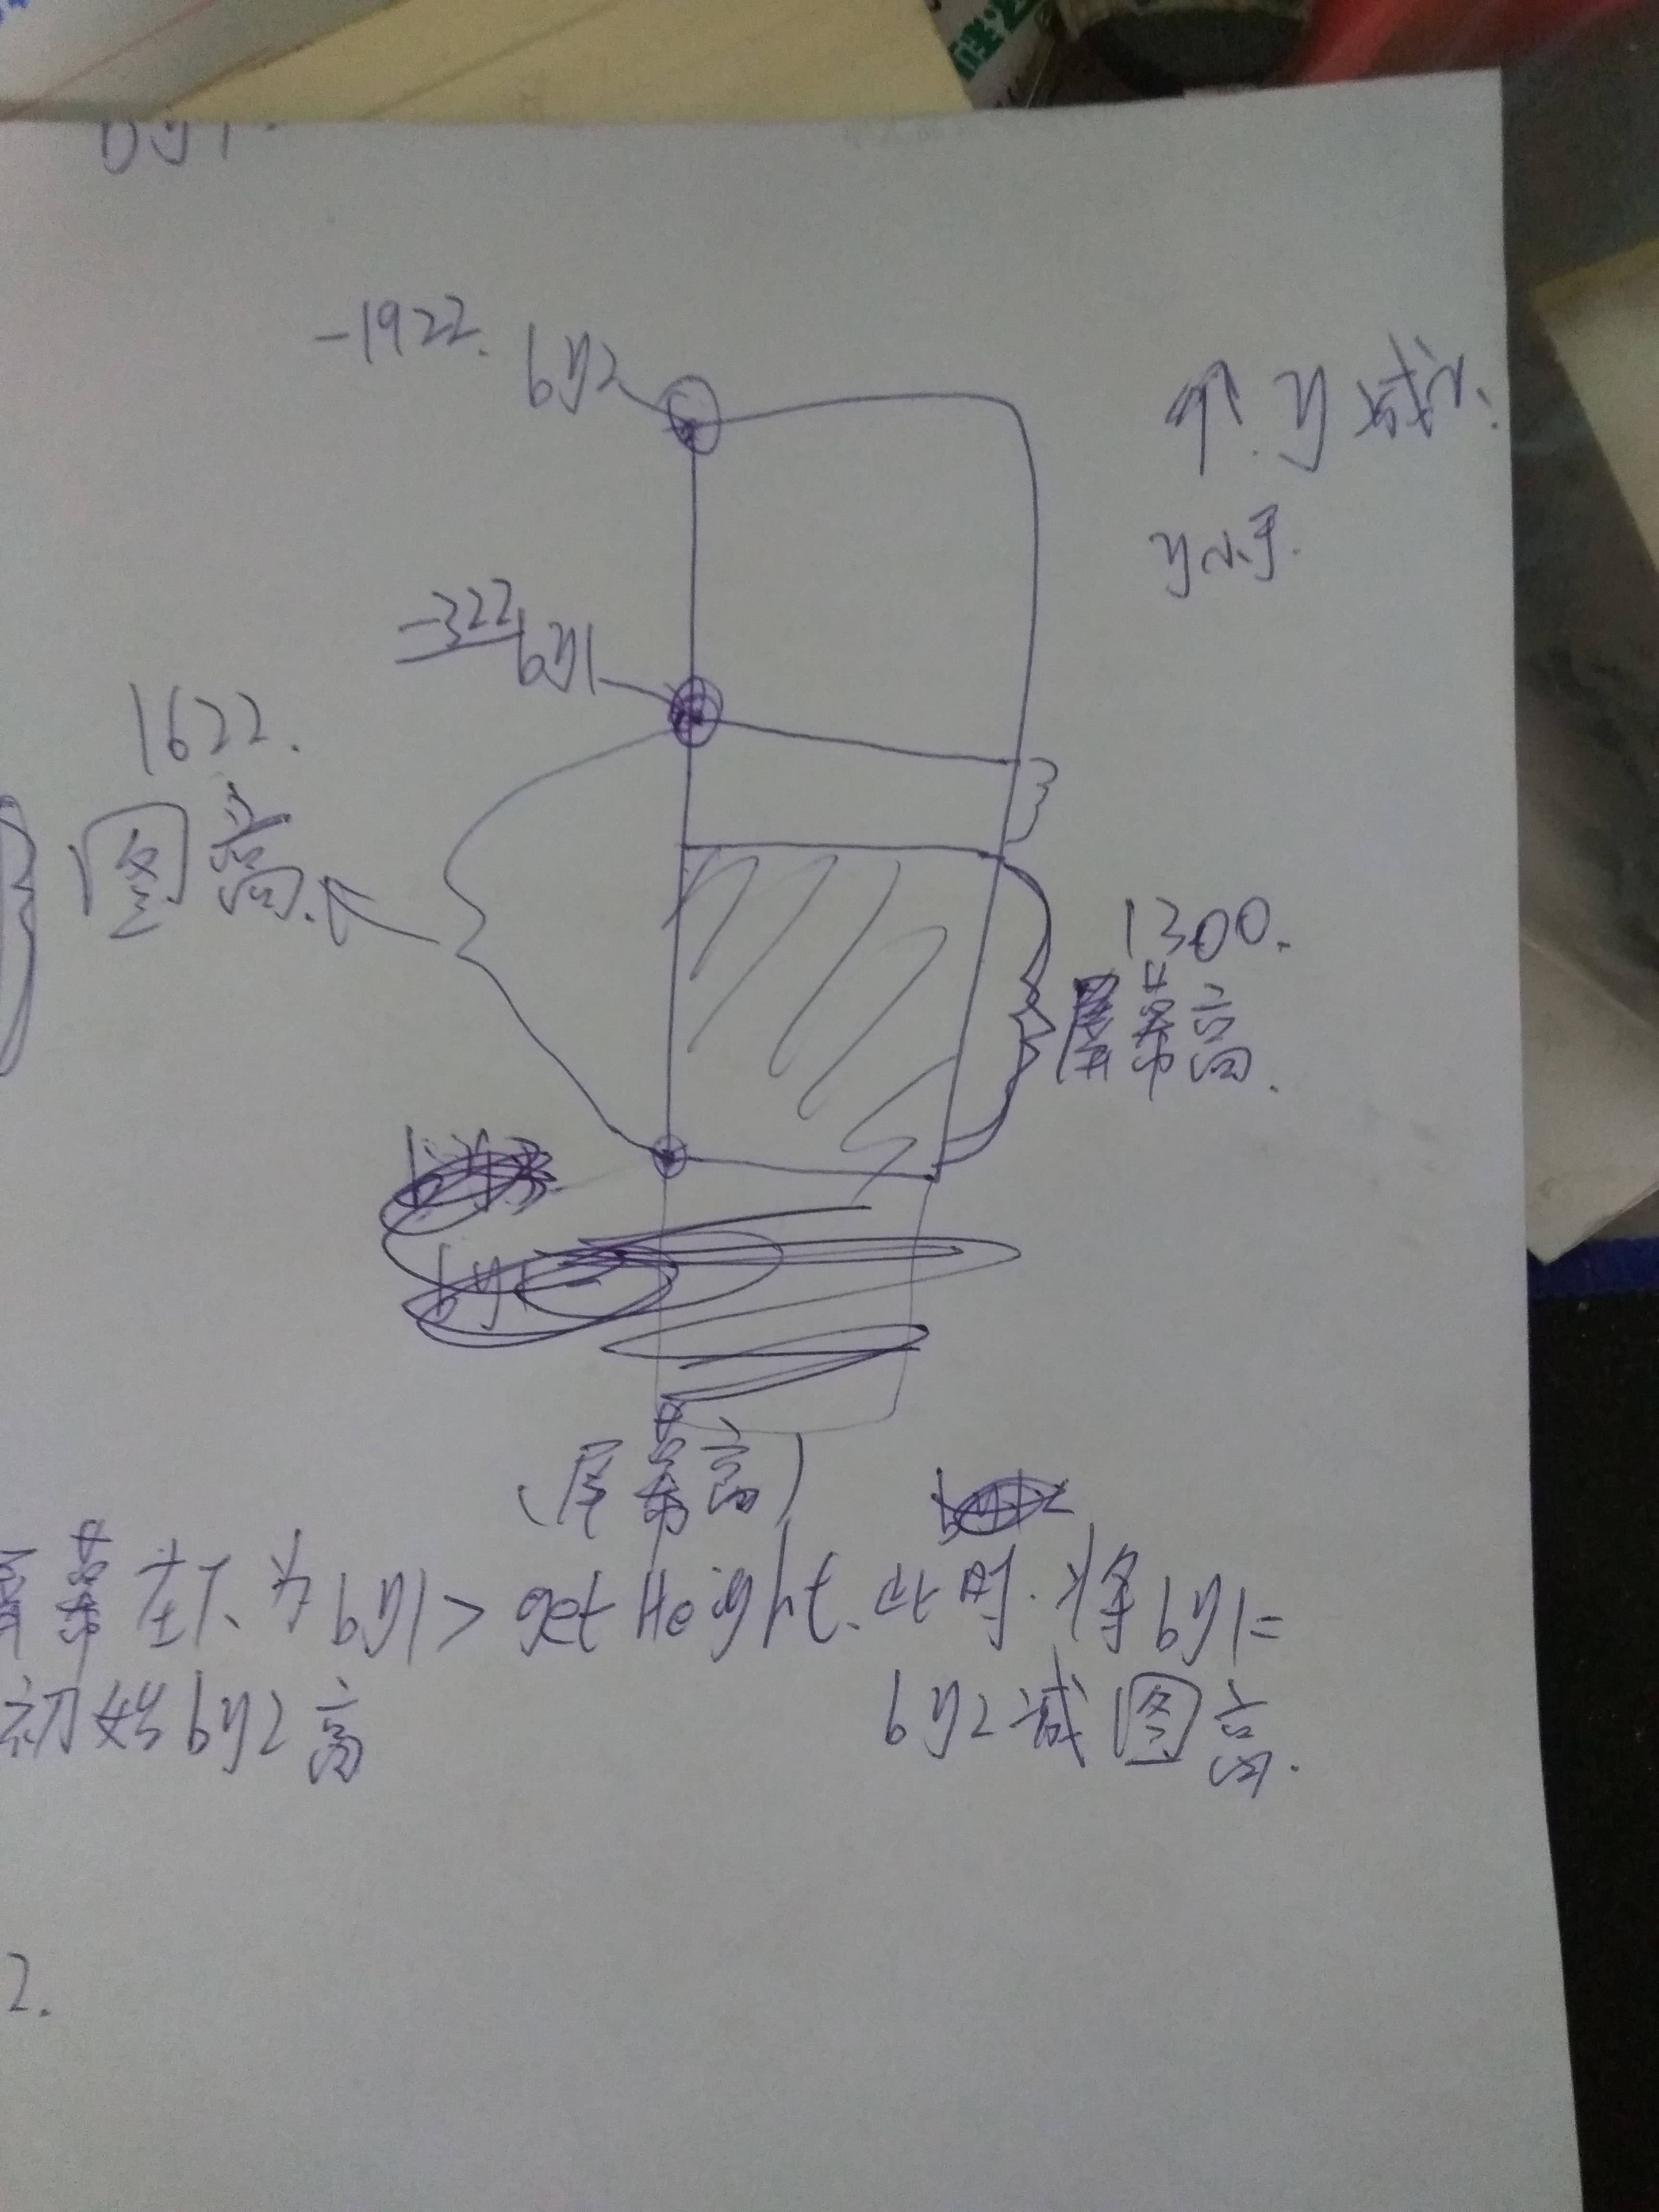 by1.
-1922. by2
个. y 减小.
y小于.
-322 by1
1622.
图高.
1300.
屏幕高.
(屏幕高)
屏幕左下为by1>getHeight.此时.将by1=
初始by2高
by2减图高.
2.